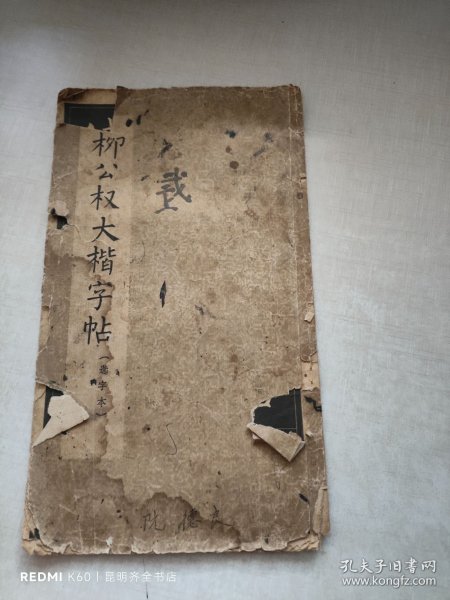 柳公权大楷字帖
（选字本）
REDMI K60 | 昆明齐全书店
孔夫子旧书网
www.kongfz.com